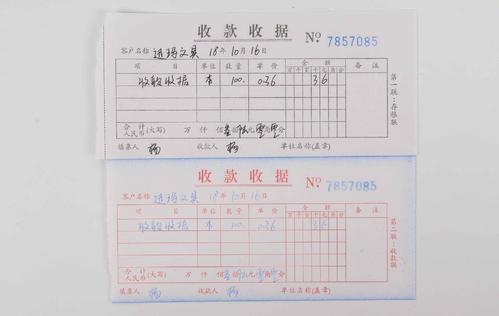 收款收据 No 7857085
客户名称 迅玛文具 18年10月16日
项目 单位 数量 单价 金额 备注
百 千 百 十 元 角 分
收款收据 本 100 0.36 3 6
合计人民币(大写) 万 仟 佰 叁拾陆元零角零分
填票人 杨 收款人 杨 单位名称(盖章)
第一联:存根联
收款收据 No 7857085
客户名称 迅玛文具 18年10月16日
项目 单位 数量 单价 金额 备注
收款收据 本 100 0.36 3 6
合计人民币(大写) 万 仟 佰 叁拾陆元零角零分
填票人 杨 收款人 杨 单位名称(盖章)
第二联:收款联